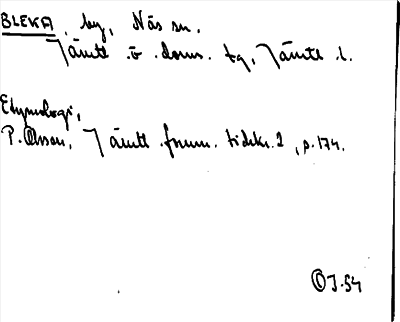 BLEKA, by, Näs sn.
Jämtl. ö. doms. tg, Jämtl. l.
Etymologi,
P. Olsson, Jämtl. fornm. tidskr. 2, p. 174.
OJ. 54